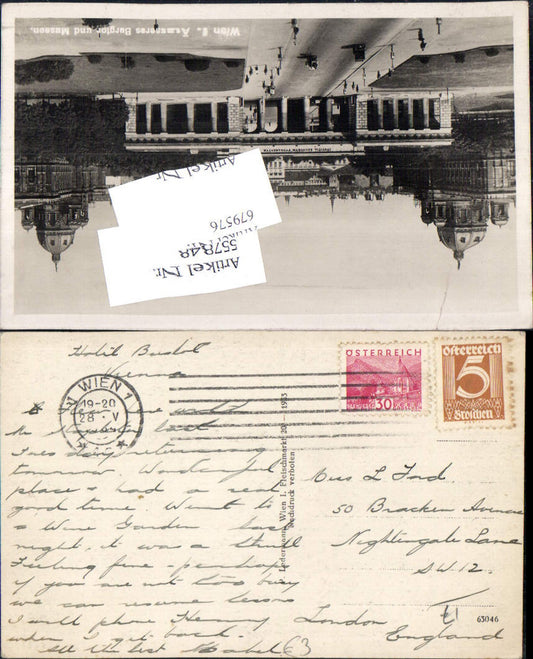 Wien I. Äusseres Burgtor und Museen.
Artikel Nr.
679576
Artikel Nr.
557848
Hotel Bristol
Vienna
1 WIEN 1
19-20
28 · V
ÖSTERREICH
30
Österreich
5
Groschen
Ledermann, Wien I. Fleischmarkt 20 — 1933
Nachdruck verboten.
back
Tues day returning
tomorrow Wonderful
place & had a real
good time. Went to
a Wine Garden last
night, it was a thrill
Feeling fine - perhaps
if you are not too busy
we can resume lessons
I will phone Flemming
when I get back.
All the best Mabel
Miss L Ford
50 Bracken Avenue
Nightingale Lane
S.W.12.
London
England
63046
£1
£3